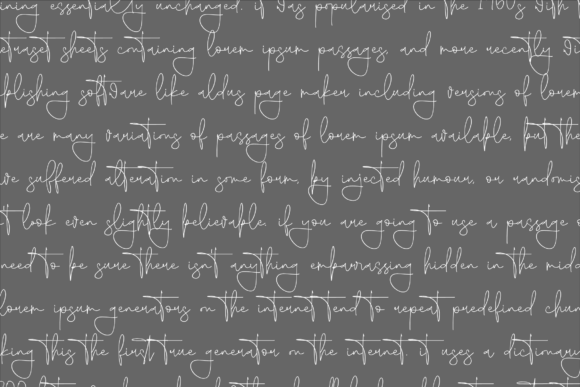 ining essentially unchanged. if was popularised in the 1960s with
etraset sheets containing lorem ipsum passages, and more recently wi
blishing software like aldus page maker including versions of lorem
e are many variations of passages of lorem ipsum available, but the
ve suffered alteration in some form, by injected humour, or randomis
't look even slightly believable. if you are going to use a passage o
need to be sure there isn't anything embarrassing hidden in the midd
lorem ipsum generators on the internet tend to repeat predefined chun
king this the first true generator on the internet. it uses a dictionary